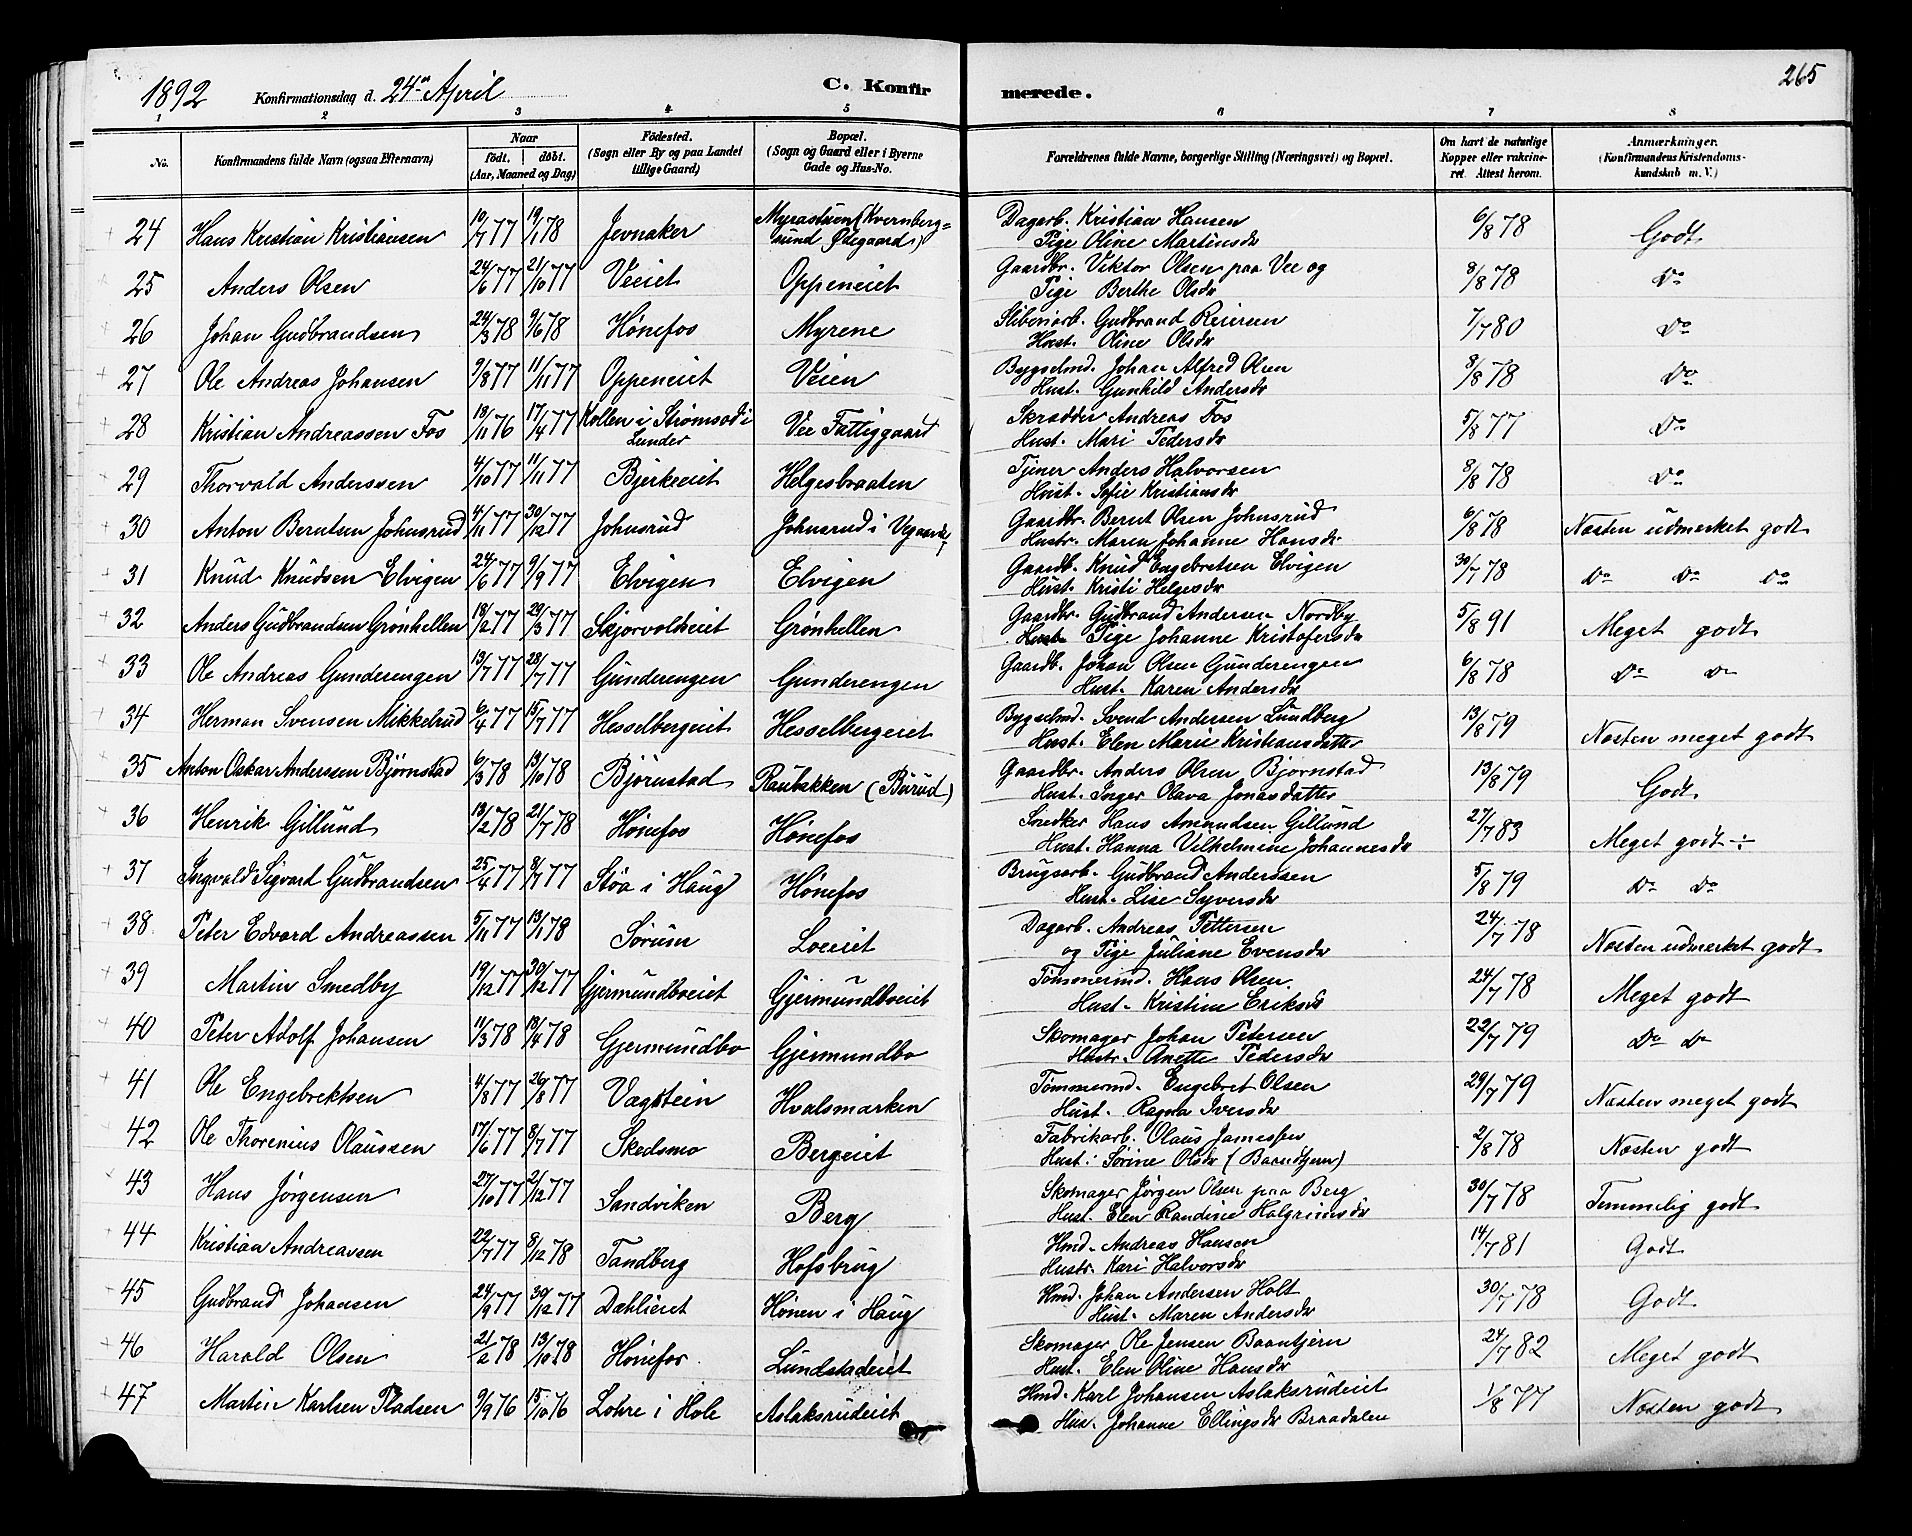 1892 Konfirmationsdag d. 24de April C. Konfirmerede. 265
1 2 3 4 5 6 7 8
No. Konfirmandens fulde Navn (ogsaa Efternavn) Naar födt. döbt. (Aar, Maaned og Dag) Födested. (Sogn eller By og paa Landet tillige Gaard) Bopæl. (Sogn og Gaard eller i Byerne Gade og Hus-No. Forældrenes fulde Navne, borgerlige Stilling (Næringsvei) og Bopæl. Om havt de naturlige Kopper eller vakcineret. Attest herom. Anmærkninger. (Konfirmandens Kristendomskundskab m. V.)
24 Hans Kristian Kristiansen 10/7 77 19/1 78 Jevnaker Myrastuen (Kvernbergsund Ødegaard) Dagarb. Kristian Hansen 6/8 78 Godt
Pige Oline Martinsdr
25 Anders Olsen 24/6 77 21/10 77 Veeiet Oppeneiet Gaardbr. Viktor Olsen paa Vee og 8/8 78 Do
Pige Berthe Olsdr
26 Johan Gudbrandsen 24/3 78 9/6 78 Hønefos Myrene Sliberiarb. Gudbrand Reiersen 7/7 80 Do
Hust. Oline Olsdr
27 Ole Andreas Johansen 9/8 77 11/11 77 Oppeneiet Veien Bygselmd. Johan Alfred Olsen 8/8 78 Do
Hust. Gunhild Andersdr
28 Kristian Andreassen Fos 18/11 76 17/4 77 Kollen i Strømsod i Lunder Vee Fattiggaard Skrædder Andreas Fos 5/8 77 Do
Hust. Mari Pedersdr
29 Thorvald Anderssen 4/10 77 11/11 77 Bjerkeeiet Helgesbraaten Tjener Anders Halvorsen 8/8 78 Do
Hust. Sofie Kristiansdr
30 Anton Berntsen Johnsrud 4/11 77 30/12 77 Johnsrud Johnsrud i Vegaards Gaardbr. Bernt Olsen Johnsrud 6/8 78 Næsten udmerket godt
Hustr. Maren Johanne Hansdr
31 Knud Knudsen Elvigen 24/6 77 9/9 77 Elvigen Elvigen Gaardb. Knud Engebretsen Elvigen 30/7 78 Do Do Do
Hust. Kristi Helgesdr
32 Anders Gudbrandsen Grønhellen 18/2 77 29/3 77 Skjørvoldeiet Grønhellen Gaardbr. Gudbrand Andersen Nordby 5/8 91 Meget godt
Hust. Pige Johanne Kristofersdr
33 Ole Andreas Gunderengen 13/7 77 28/7 77 Gunderengen Gunderengen Gaardb. Johan Olsen Gunderengen 6/8 78 Do Do
Hust. Karen Andersdr
34 Herman Svensen Mikkelrud 6/4 77 15/7 77 Hesselbergeiet Hesselbergeiet Bygselmd. Svend Andersen Lundberg 13/8 79 Næsten meget godt
Hust. Elen Marie Kristiansdatter
35 Anton Oskar Anderssen Bjørnstad 6/3 78 13/10 78 Bjørnstad Raubakken (Burud) Gaardbr. Anders Olsen Bjørnstad 13/8 79 Godt
Hust. Inger Olava Jonasdatter
36 Henrik Gillund 13/2 78 21/7 78 Hønefos Hønefos Snedker Hans Amundsen Gillund 27/7 83 Meget godt ÷
Hust. Hanna Vilhelmine Johannesdr
37 Ingvald Sigvard Gudbrandsen 25/4 77 8/7 77 Støa i Haug Hønefos Brugsarb. Gudbrand Anderssen 5/8 79 Do Do
Hust. Lise Syversdr
38 Peter Edvard Andreassen 5/11 77 13/1 78 Sørum Loeiet Dagarb. Andreas Pettersen 24/7 78 Næsten udmerket godt
og Pige Juliane Evensdr
39 Martin Smedby 19/12 77 30/12 77 Gjermundboeiet Gjermundboeiet Tømmermd. Hans Olsen 24/7 78 Meget godt
Hust. Kristine Eriksdr
40 Peter Adolf Johansen 11/3 78 18/4 78 Gjermundbo Gjermundbo Skomager Johan Petersen 22/7 79 Do Do
Hustr. Anette Pedersdr
41 Ole Engebrektsen 4/8 77 26/8 77 Vagstein Hvalsmarken Tømmermd. Engebret Olsen 29/7 79 Næsten meget godt
Hust. Ragna Iversdr
42 Ole Thorenius Olaussen 17/6 77 8/7 77 Skedsmo Bergeiet Fabrikarb. Olaus Jamessen 2/8 78 Næsten godt
Hust. Sørine Olsdr (Baantjern)
43 Hans Jørgensen 27/10 77 2/12 77 Sandviken Berg Skomager Jørgen Olsen paa Berg 30/7 78 Temmelig godt
Hust. Elen Randine Halgrimsdr
44 Kristian Andreassen 22/7 77 8/12 78 Tandberg Hofsbrug Hmd. Andreas Hansen 14/7 81 Godt
Hustr. Kari Halvorsdr
45 Gudbrand Johansen 24/9 77 30/12 77 Dæhlieiet Hønen i Haug Hmd. Johan Andersen Holt 30/7 78 Godt
Hust. Maren Andersdr
46 Harald Olsen 21/2 78 13/10 78 Hønefos Lundstadeiet Skomager Ole Jensen Baantjern 24/7 82 Meget godt
Hust. Elen Oline Hansdr
47 Martin Karlsen Pladsen 9/9 76 15/10 76 Lohre i Hole Aslaksrudeiet Hmd. Karl Johansen Aslaksrudeiet 1/8 77 Næsten godt
Hus. Johanne Ellingsdr Braadalen